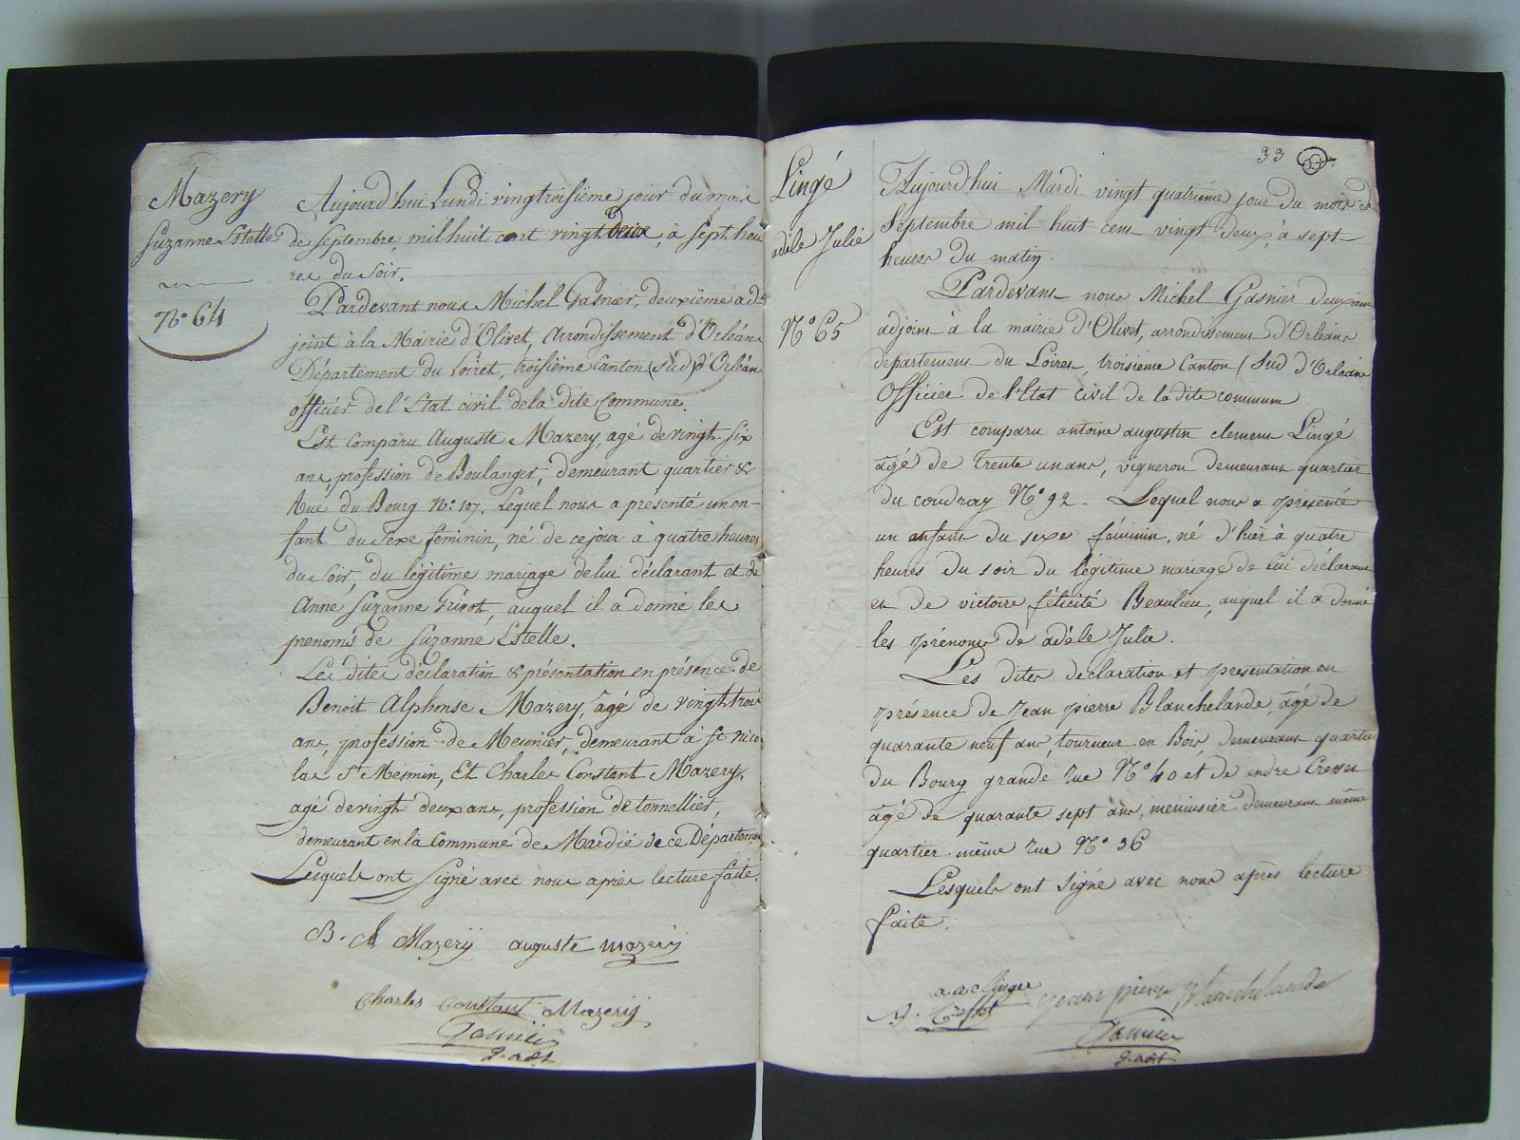 Mazery
Suzanne Estelle
N.° 64
Aujourd'hui Lundi vingtroisième jour du mois
de Septembre, mil huit cent vingt deux, à Sept heu
res du Soir.
Pardevant nous Michel Gasnier, deuxième ad-
joint à la Mairie d'Olivet, Arrondissement d'Orléans
Département du Loiret, troisième Canton (Sud) d'Orléans
officier de l'Etat civil de la dite Commune.
Est Comparu Auguste Mazery, agé de vingt-six
ans, profession de Boulanger, demeurant quartier &
Rue du Bourg N.° 107. Lequel nous a présenté un en-
fant du Sexe feminin, né de ce jour à quatre heures
du Soir, du légitime mariage de lui déclarant et de
Anne Suzanne, auquel il a donné les
prenoms de Suzanne Estelle.
Les dites déclaration & présentation en présence de
Benoit Alphonse Mazery, agé de vingt trois
ans, profession de Meunier, demeurant à St. Nico
las St. Mesmin, Et Charles Constant Mazery,
agé de vingt deux ans, profession de tonnellier,
demeurant en la Commune de Mardié de ce Département
Lesquels ont Signé avec nous après lecture faite.
B. A Mazerÿ auguste mazerÿ
Charles Constant Mazerÿ
Gasnier
2. adt
33
Lingé
adèle Julie
N.° 65
Aujourd'hui Mardi vingt quatrième jour du mois de
Septembre mil huit cent vingt deux, à sept
heures du matin.
Pardevant nous Michel Gasnier deuxieme
adjoint à la mairie d'Olivet, arrondissement d'Orléans
departement du Loiret, troisieme Canton (Sud d'Orleans
Officier de l'Etat Civil de la dite commune
Est comparu antoine augustin clement Lingé
âgé de trente un ans, vigneron demeurant quartier
du coudray N.° 92. Lequel nous a présenté
un enfant du sexe féminin, né d'hier à quatre
heures du soir du légitime mariage de lui déclarant
et de victoire félicité Beaulieu, auquel il a donné
les prénoms de adèle Julie.
Les dites declaration et presentation en
présence de Jean pierre Blanchelande, âgé de
quarante neuf ans tourneur en Bois, demeurant quartier
du Bourg grande rue N.° 40 et de
âgé de quarante sept ans, menuisier demeurant même
quartier même rue N.° 36
Lesquels ont Signé avec nous après lecture
faite.
a a c linger
jean pierre Blanchelande
Gasnier
2. adt